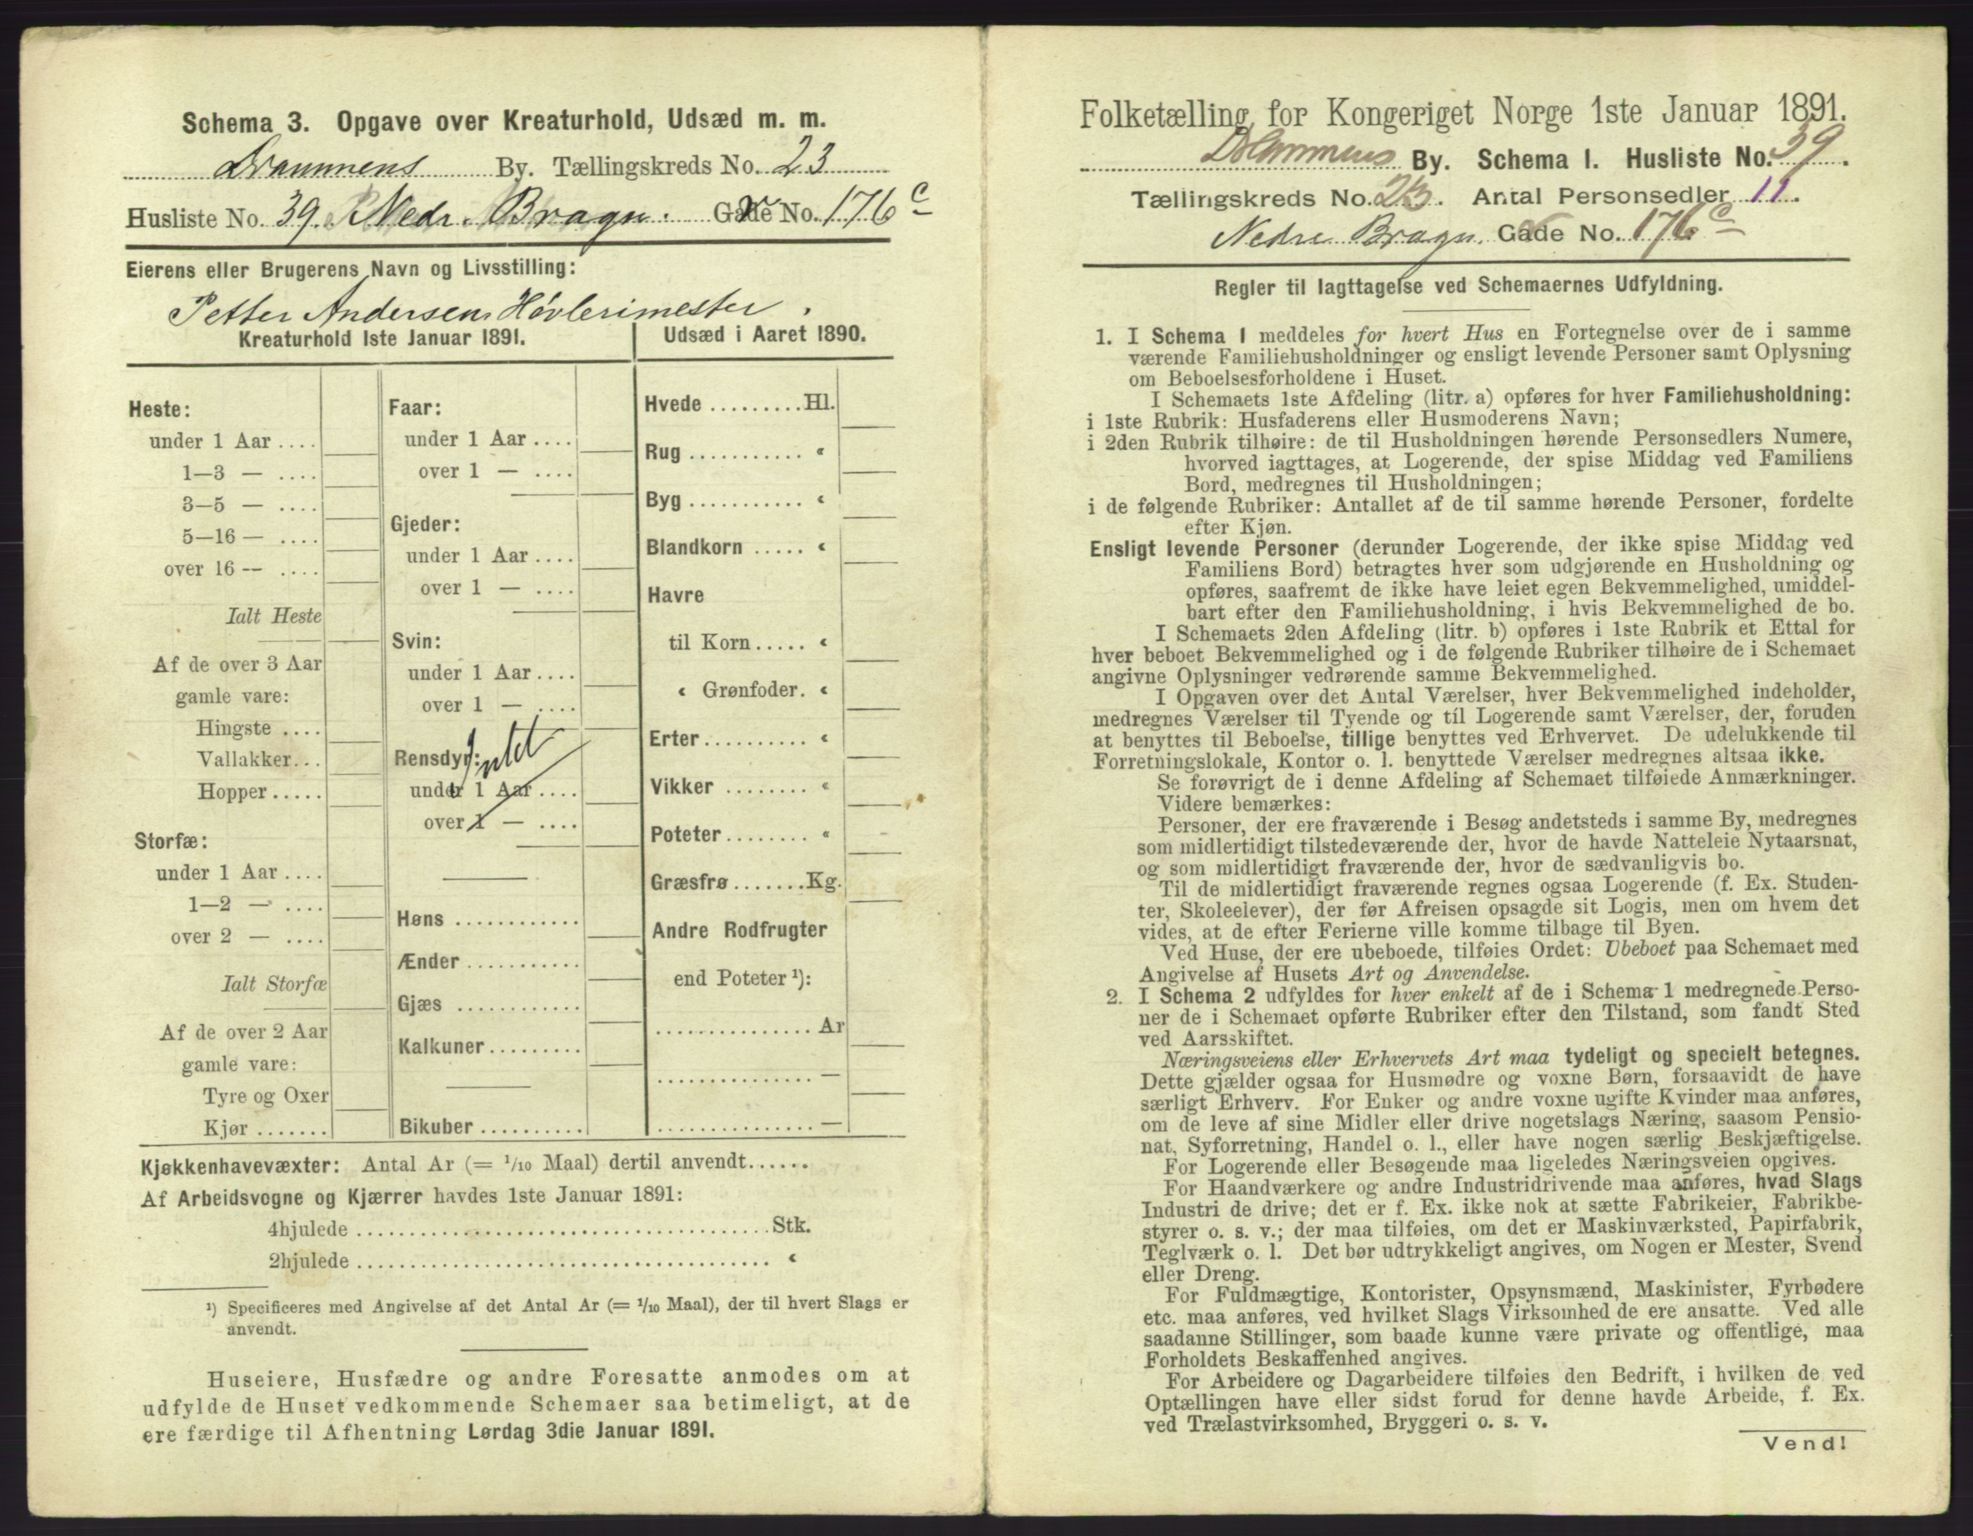 Schema 3. Opgave over Kreaturhold, Udsæd m. m.
Drammens By. Tællingskreds No. 23
Husliste No. 39. Nedr. Bragn. Gade No. 176 c
Eierens eller Brugerens Navn og Livsstilling:
Petter Andersen Høvlerimester.
Kreaturhold 1ste Januar 1891.
Heste:
under 1 Aar ....
1—3 — ....
3—5 — ....
5—16 — ....
over 16 — ....
Ialt Heste
Af de over 3 Aar
gamle vare:
Hingste ....
Vallakker...
Hopper.....
Storfæ:
under 1 Aar ....
1—2 — ....
over 2 — ....
Ialt Storfæ
Af de over 2 Aar
gamle vare:
Tyre og Oxer
Kjør .......
Faar:
under 1 Aar ....
over 1 — ....
Gjeder:
under 1 Aar ....
over 1 — ....
Svin:
under 1 Aar....
over 1 — ....
Rensdyr:
Intet
under 1 Aar ....
over 1 — ....
Høns ............
Ænder ...........
Gjæs ............
Kalkuner.........
Bikuber ..........
Udsæd i Aaret 1890.
Hvede .........Hl.
Rug ........... «
Byg ........... «
Blandkorn ..... «
Havre
til Korn ..... «
« Grønfoder. «
Erter.......... «
Vikker ........ «
Poteter ........ «
Græsfrø.......Kg.
Andre Rodfrugter
end Poteter ¹):
............... Ar
............... —
............... —
Kjøkkenhavevæxter: Antal Ar (= 1/10 Maal) dertil anvendt......
Af Arbeidsvogne og Kjærrer havdes 1ste Januar 1891:
4hjulede .......................................Stk.
2hjulede ....................................... «
¹) Specificeres med Angivelse af det Antal Ar (= 1/10 Maal), der til hvert Slags er
anvendt.
Huseiere, Husfædre og andre Foresatte anmodes om at
udfylde de Huset vedkommende Schemaer saa betimeligt, at de
ere færdige til Afhentning Lørdag 3die Januar 1891.
Folketælling for Kongeriget Norge 1ste Januar 1891.
Drammens By. Schema 1. Husliste No. 39.
Tællingskreds No. 23. Antal Personsedler 11.
Nedre Bragn. Gade No. 176 c
Regler til Iagttagelse ved Schemaernes Udfyldning.
1. I Schema 1 meddeles for hvert Hus en Fortegnelse over de i samme
værende Familiehusholdninger og ensligt levende Personer samt Oplysning
om Beboelsesforholdene i Huset.
I Schemaets 1ste Afdeling (litr. a) opføres for hver Familiehusholdning:
i 1ste Rubrik: Husfaderens eller Husmoderens Navn;
i 2den Rubrik tilhøire: de til Husholdningen hørende Personsedlers Numere,
hvorved iagttages, at Logerende, der spise Middag ved Familiens
Bord, medregnes til Husholdningen;
i de følgende Rubriker: Antallet af de til samme hørende Personer, fordelte
efter Kjøn.
Ensligt levende Personer (derunder Logerende, der ikke spise Middag ved
Familiens Bord) betragtes hver som udgjørende en Husholdning og
opføres, saafremt de ikke have leiet egen Bekvemmelighed, umiddel-
bart efter den Familiehusholdning, i hvis Bekvemmelighed de bo.
I Schemaets 2den Afdeling (litr. b) opføres i 1ste Rubrik et Ettal for
hver beboet Bekvemmelighed og i de følgende Rubriker tilhøire de i Schemaet
angivne Oplysninger vedrørende samme Bekvemmelighed.
I Opgaven over det Antal Værelser, hver Bekvemmelighed indeholder,
medregnes Værelser til Tyende og til Logerende samt Værelser, der, foruden
at benyttes til Beboelse, tillige benyttes ved Erhvervet. De udelukkende til
Forretningslokale, Kontor o. l. benyttede Værelser medregnes altsaa ikke.
Se forøvrigt de i denne Afdeling af Schemaet tilføiede Anmærkninger.
Videre bemærkes:
Personer, der ere fraværende i Besøg andetsteds i samme By, medregnes
som midlertidigt tilstedeværende der, hvor de havde Natteleie Nytaarsnat,
og som midlertidigt fraværende der, hvor de sædvanligvis bo.
Til de midlertidigt fraværende regnes ogsaa Logerende (f. Ex. Studen-
ter, Skoleelever), der før Afreisen opsagde sit Logis, men om hvem det
vides, at de efter Ferierne ville komme tilbage til Byen.
Ved Huse, der ere ubeboede, tilføies Ordet: Ubeboet paa Schemaet med
Angivelse af Husets Art og Anvendelse.
2. I Schema 2 udfyldes for hver enkelt af de i Schema 1 medregnede Perso-
ner de i Schemaet opførte Rubriker efter den Tilstand, som fandt Sted
ved Aarsskiftet.
Næringsveiens eller Erhvervets Art maa tydeligt og specielt betegnes.
Dette gjælder ogsaa for Husmødre og voxne Børn, forsaavidt de have
særligt Erhverv. For Enker og andre voxne ugifte Kvinder maa anføres,
om de leve af sine Midler eller drive nogetslags Næring, saasom Pensio-
nat, Syforretning, Handel o. l., eller have nogen særlig Beskjæftigelse.
For Logerende eller Besøgende maa ligeledes Næringsveien opgives.
For Haandværkere og andre Industridrivende maa anføres, hvad Slags
Industri de drive; det er f. Ex. ikke nok at sætte Fabrikeier, Fabrikbe-
styrer o. s. v.; der maa tilføies, om det er Maskinværksted, Papirfabrik,
Teglværk o. l. Det bør udtrykkeligt angives, om Nogen er Mester, Svend
eller Dreng.
For Fuldmægtige, Kontorister, Opsynsmænd, Maskinister, Fyrbødere
etc. maa anføres, ved hvilket Slags Virksomhed de ere ansatte. Ved alle
saadanne Stillinger, som baade kunne være private og offentlige, maa
Forholdets Beskaffenhed angives.
For Arbeidere og Dagarbeidere tilføies den Bedrift, i hvilken de ved
Optællingen have eller sidst forud for denne havde Arbeide, f. Ex.
ved Trælastvirksomhed, Bryggeri o. s. v.
Vend!